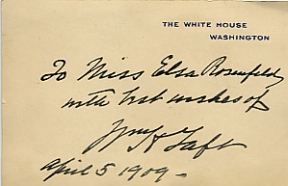 THE WHITE HOUSE
WASHINGTON
To Miss Elsa Rosenfeld
with best wishes of
Wm H Taft
April 5 1909-